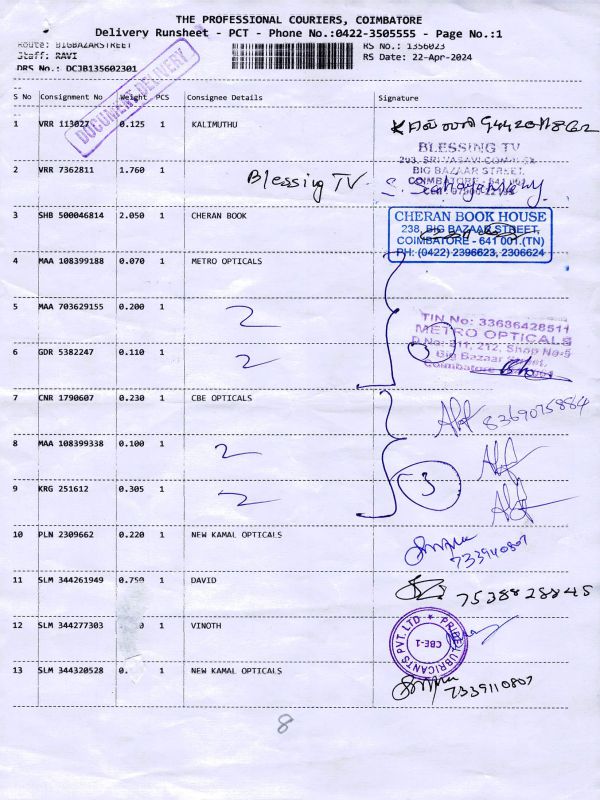 THE PROFESSIONAL COURIERS, COIMBATORE
Delivery Runsheet - PCT - Phone No.:0422-3505555 - Page No.:1
Route: BIGBAZARSTREET
Staff: RAVI
DRS No.: DCJB135602301
RS No.: 1356023
RS Date: 22-Apr-2024
DOCUMENT DELIVERY
S No Consignment No Weight PCS Consignee Details Signature
1 VRR 113027 0.125 1 KALIMUTHU
2 VRR 7362811 1.760 1 Blessing TV
BLESSING TV
BIG BAZAAR STREET,
3 SHB 500046814 2.050 1 CHERAN BOOK
CHERAN BOOK HOUSE
238, BIG BAZAAR STREET,
COIMBATORE - 641 001.(TN)
PH: (0422) 2396623, 2306624
4 MAA 108399188 0.070 1 METRO OPTICALS
5 MAA 703629155 0.200 1
6 GDR 5382247 0.110 1
TIN No: 33636428511
METRO OPTICALS
D.No: 211, 212, Shop No-5
Big Bazaar Street,
Coimbatore
7 CNR 1790607 0.230 1 CBE OPTICALS 8369075884
8 MAA 108399338 0.100 1
9 KRG 251612 0.305 1
3
10 PLN 2309662 0.220 1 NEW KAMAL OPTICALS
11 SLM 344261949 0.750 1 DAVID 7538828845
12 SLM 344277303 1 VINOTH
PRIDE LUBRICANTS PVT. LTD
CBE-1
13 SLM 344320528 0. 1 NEW KAMAL OPTICALS 7339110807
8